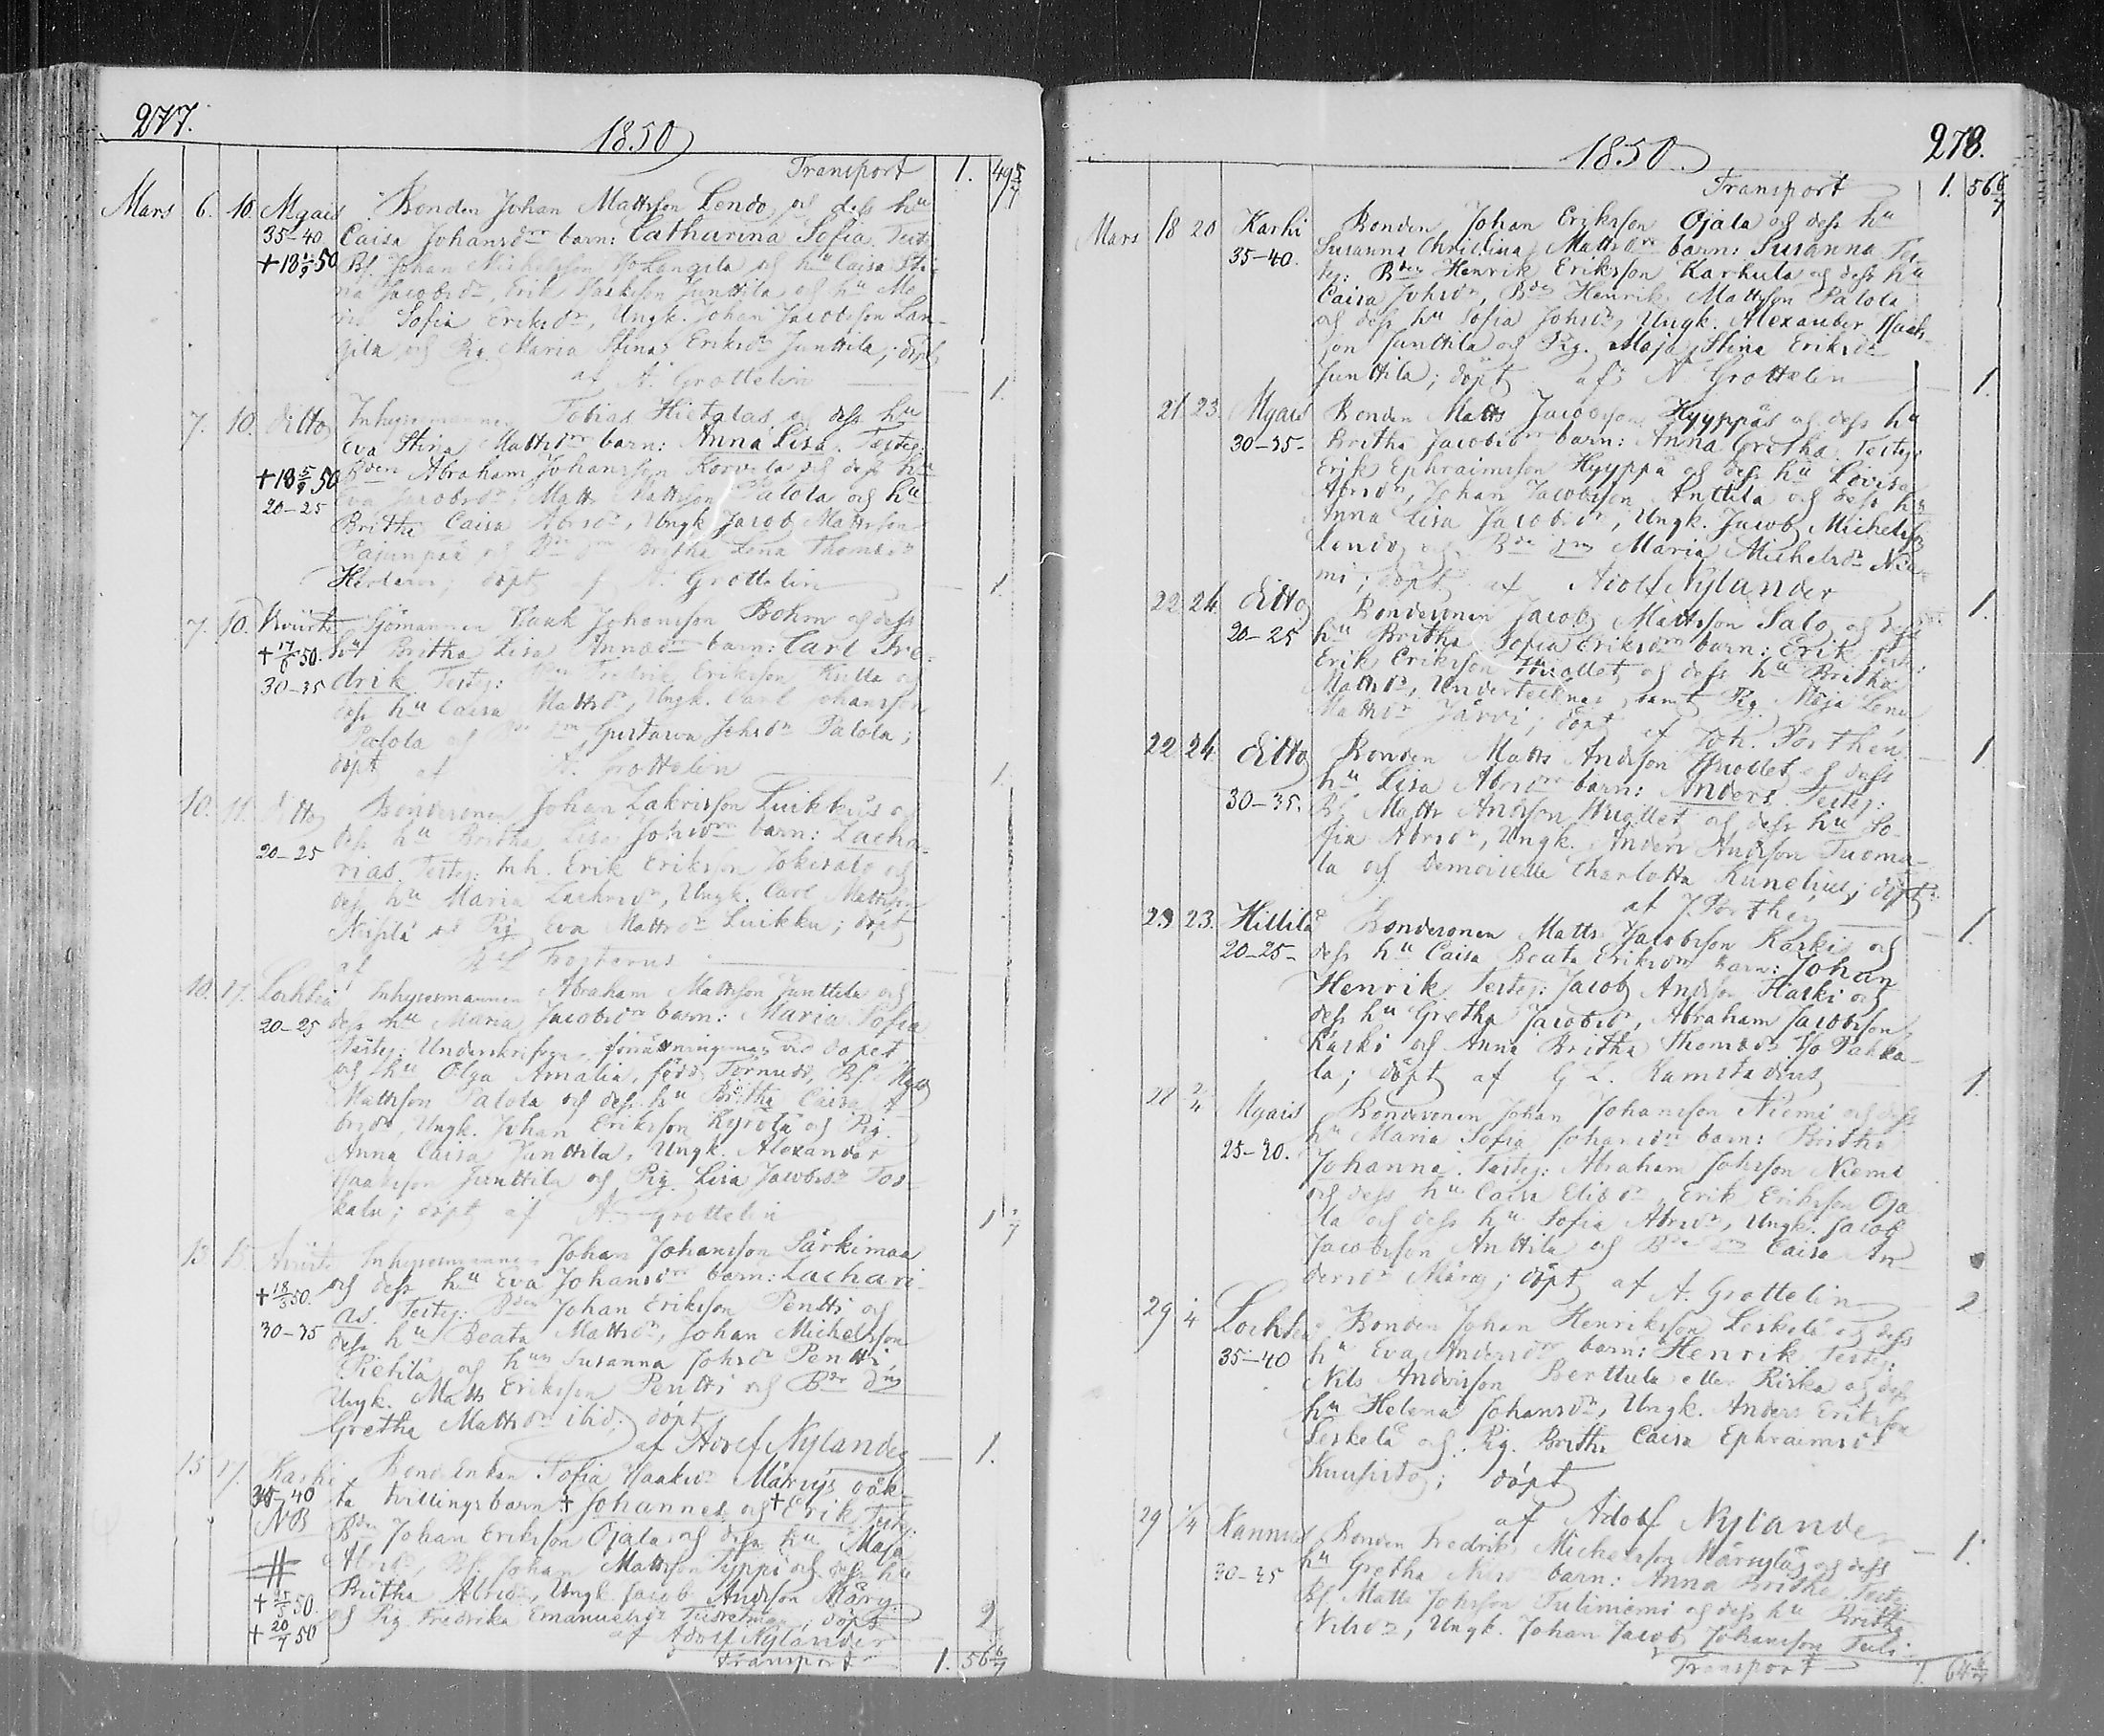 277.
1850
Transport 1. 49 5/7
Mars 6. 10. Mgais Bonden Johan Mattsson Lendo och dess hu
35-40 Caisa Johansdr barn: Catharina Sofia. Test:
+18 50 Bf. Johan Michelsson Yli Langila och hu Caisa Sti-
na Jacobsdr, Erik Isaksson Junttila och hu Ma-
Sofia Eriksdr, Ungk. Johan Jacobsson Lan-
gila och Pig. Maria Stina Eriksdr Junttila; döpt
af A. Grottelin 1.
7. 10. ditto Inhysesmannen Tobias Hietalas och dess hu
Eva Stina Mattsdr barn: Anna Lisa. Testes:
+18 5/9 50 Bden Abraham Johansson Korvela och dess hu
20-25 Eva Jacobsdr, Matts Mattsson Palola och hu
Britha Caisa Abrsdr, Ungk Jacob Mattsson
Pajunpää och Bdr Britha Lena Thomasdr
döpt af A. Grottelin 1.
7. 10. Sjömannen Isaak Johansson Bohm och dess
+17/6 50. hu Britha Lisa Annasdr barn: Carl Fre-
30-35 drik Testes: Fredrik Eriksson Kutta och
dess hu Caisa Mattsdr, Ungk. Carl Johansson
Palola och Gustava Johsdr Palola;
döpt af A. Grottelin 1.
10. 11. ditto Bondesonen Johan Zakrisson Luikku och
20-25 dess hu Britha Lisa Johsdr barn: Zacha-
rias. Testes: Inh. Erik Eriksson Jokisalo och
dess hu Maria Zachrsdr, Ungk. Carl Mattsson
och Pig Eva Mattsdr Luikku; döpt
af Frosterus
10. 17. Lochteå Inhysesmannen Abraham Mattsson Junttila och
20-25 dess hu Maria Jacobsdr barn: Maria Sofia
Testes: förrättningsman vid dopet
och hu Olga Amalia, född Törnudd, Bf.
Mattsson Palola och dess hu Britha Caisa A-
brsdr, Ungk. Johan Eriksson Kyrölä och Pig.
Anna Caisa Junttila, Ungk. Alexander
Isaaksson Junttila och Pig. Lisa Jacobsdr Tos-
kala; döpt af A. Grottelin
13 15. Inhysesmannen Johan Johansson Särkimaa
+18/5 50. och dess hu Eva Johansdr barn: Zachari-
30-35 as. Testes: Bden Johan Eriksson Pentti och
dess hu Beata Mattsdr, Johan Michelsson
Pietilä och hus Susanna Johsdr Pentti,
Ungk. Matts Eriksson Pentti och Bdr
Gretha Mattsdr ibid; döpt
af Adolf Nylander 1.
15 17. Karhi Bond Enkan Sofia Isaksdr Märsys oäk-
35-40 ta tvillingsbarn + Johannes och + Erik Testes:
NB Bden Johan Eriksson Ojala och dess hu Maja
# Abrsdr, Bf. Johan Mattsson Typpö och dess hu
+25/5 50. Britha Abrsdr, Ungk. Jacob Andsson Märsy
+20/7 50 och Pig. Fredrika Emanuelsdr döpt 2
af Adolf Nylander
Transport 1. 56 6/7
278.
1850
Transport 1. 56 6/7
Mars 18 20 Karhi Bonden Johan Eriksson Ojala och dess hu
35-40. Susanna Christina Mattsdr barn: Susanna Tes-
tes: Bden Henrik Eriksson Karhula och dess hu
Caisa Johsdr, Bde Henrik Mattsson Palola
och dess hu Sofia Johsdr, Ungk. Alexander Isaaks-
son Junttila och Pig. Maja Stina Eriksdr
Junttila; döpt af A. Grottelin 1.
21 23. Mgais Bonden Matts Jacobsson Hyyppäs och dess hu
30-35- Britha Jacobsdr barn: Anna Gretha. Testes:
Erik Ephraimsson Hyyppä och dess hu Lovisa
Abrsdr, Johan Jacobsson Anttila och dess hu
Anna Lisa Jacobsdr, Ungk. Jacob Michelsson
Lendo och Bde Maria Michelsdr Nie-
mi; döpt af Adolf Nylander 1.
22 24. ditto Bondesonen Jacob Mattsson Salo och dess
20-25 hu Britha Sofia Eriksdr barn: Erik Testes:
Erik Eriksson Huollet och dess hu Britha
Mattsdr, Undertecknad, samt Pig Maja Lena
Mattsdr Järvi; döpt af Joh. Porthen 1
22 24. ditto Bonden Matts Andsson Huollet och dess
30-35. hu Lisa Abrsdr barn: Anders. Testes:
Bf Matts Andsson Huollet och dess hu So-
fia Abrsdr, Ungk. Anders Andsson Tuoma-
la och Demoiselle Charlotta Kunelius; döpt
af J. Porthen 1.
23 23. Hillilä Bondesonen Matts Jacobsson Karhi och
20-25- dess hu Caisa Beata Eriksdr barn: Johan
Henrik Testes: Jacob Andsson Karhi och
dess hu Gretha Jacobsdr, Abraham Jacobsson
Karhi och Anna Britha Thomasdr
la; döpt af G L. Ramstadius 1.
28 2/4 Mgais Bondesonen Johan Johansson Niemi och dess
25-30. hu Maria Sofia Johansdr barn: Britha
Johanna. Testes: Abraham Johsson Niemi
och dess hu Caisa Eliasdr, Erik Eriksson Oja
la och dess hu Sofia Abrsdr, Ungk. Jacob
Jacobsson Anttila och Bde Caisa An-
dersdr Märsy; döpt af A. Grottelin 2
29 1/4 Lochteå Bonden Johan Henriksson Leskelä och dess
35-40 hu Eva Andersdr barn: Henrik Testes:
Nils Andersson Berttula eller Riska och dess
hu Helena Johansdr, Ungk. Anders Eriksson
Leskelä och Pig. Britha Caisa Ephraimsdr
Kuusisto; döpt
af Adolf Nylander 1.
29 1/4 Kannus Bonden Fredrik Michelsson Märsylä och dess
30-35 hu Gretha Nilsdr barn: Anna Britha Testes:
Bf Matts Johsson Tuliniemi och dess hu Britha
Nilsdr, Ungk. Johan Jacob Johansson Tuli-
Transport 1. 64 6/7